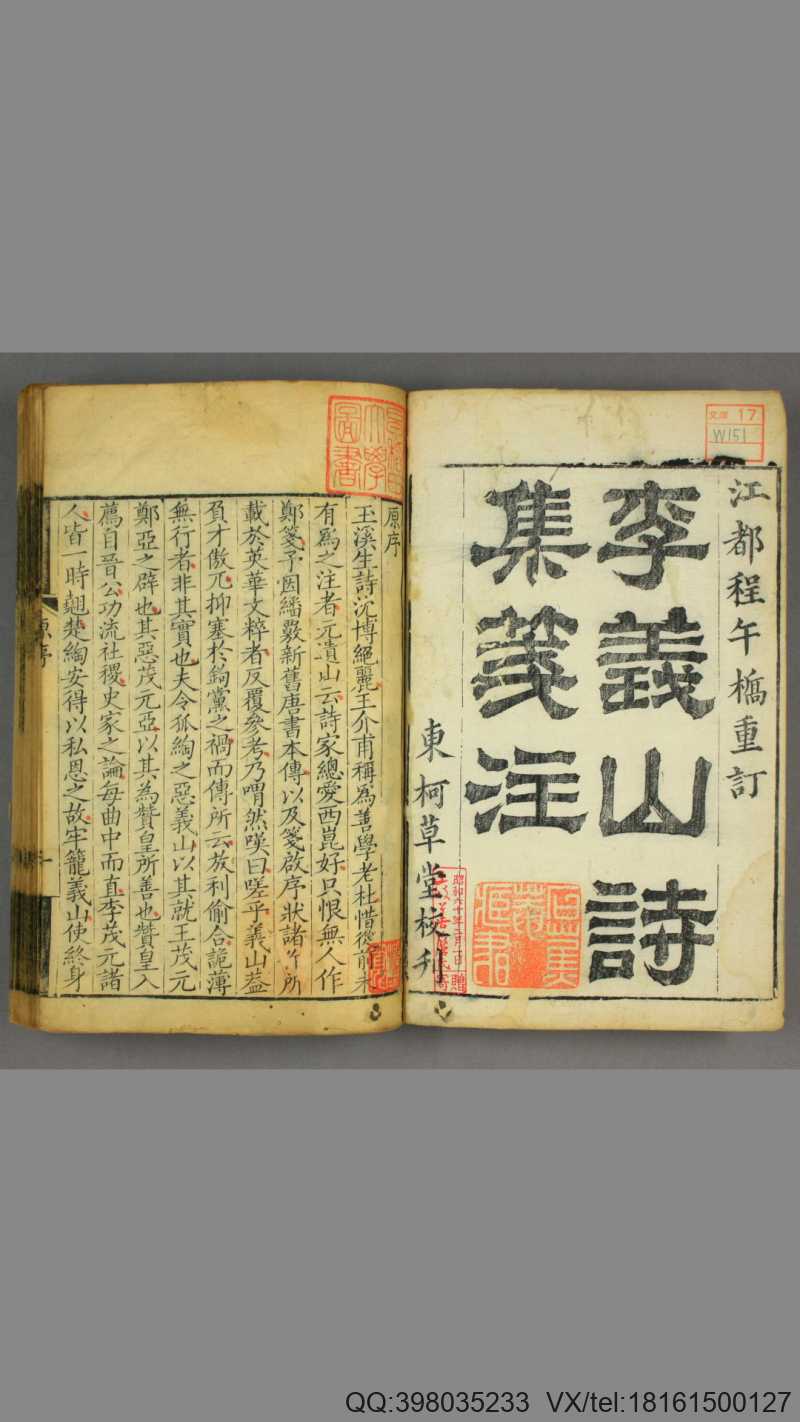 江都程午橋重訂
李義山詩
集箋注
東柯草堂校刋
文庫 17
W151
昭和六十年 月 日 贈
原序
玉溪生詩沈博絕麗王介甫稱爲善學老杜惜從前未
有爲之注者元遺山云詩家總愛西崑好只恨無人作
鄭箋予因繙覈新舊唐書本傳以及箋啟序狀諸作所
載於英華文粹者反覆參考乃喟然嘆曰嗟乎義山葢
負才傲兀抑塞於鈎黨之禍而傳所云放利偷合詭薄
無行者非其實也夫令狐綯之惡義山以其就王茂元
鄭亞之辟也其惡茂元亞以其為贊皇所善也贊皇入
薦自晉公功流社稷史家之論每曲牛而直李茂元諸
人皆一時翹楚綯安得以私恩之故牢籠義山使終身
原序
一
圖書
QQ:398035233 VX/tel:18161500127